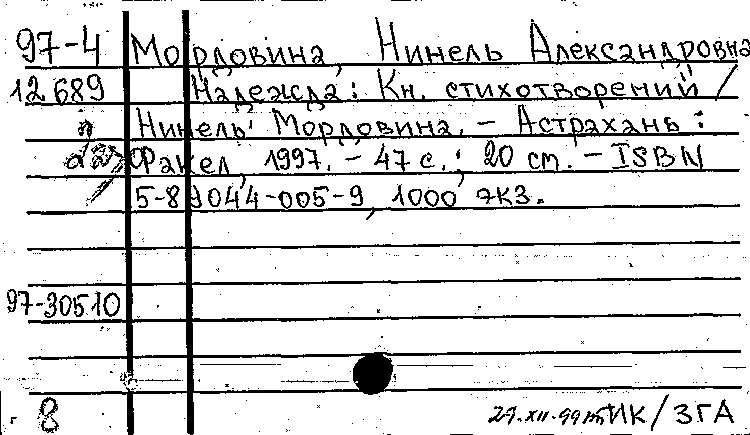 97-4 Мордовина, Нинель Александровна
12689 Надежда: Кн. стихотворений /
Нинель Мордовина. – Астрахань:
Факел, 1997. – 47 с.; 20 cm. – ISBN
5-89044-005-9, 1000 экз.
97-30510
8
ИК/ЗГА